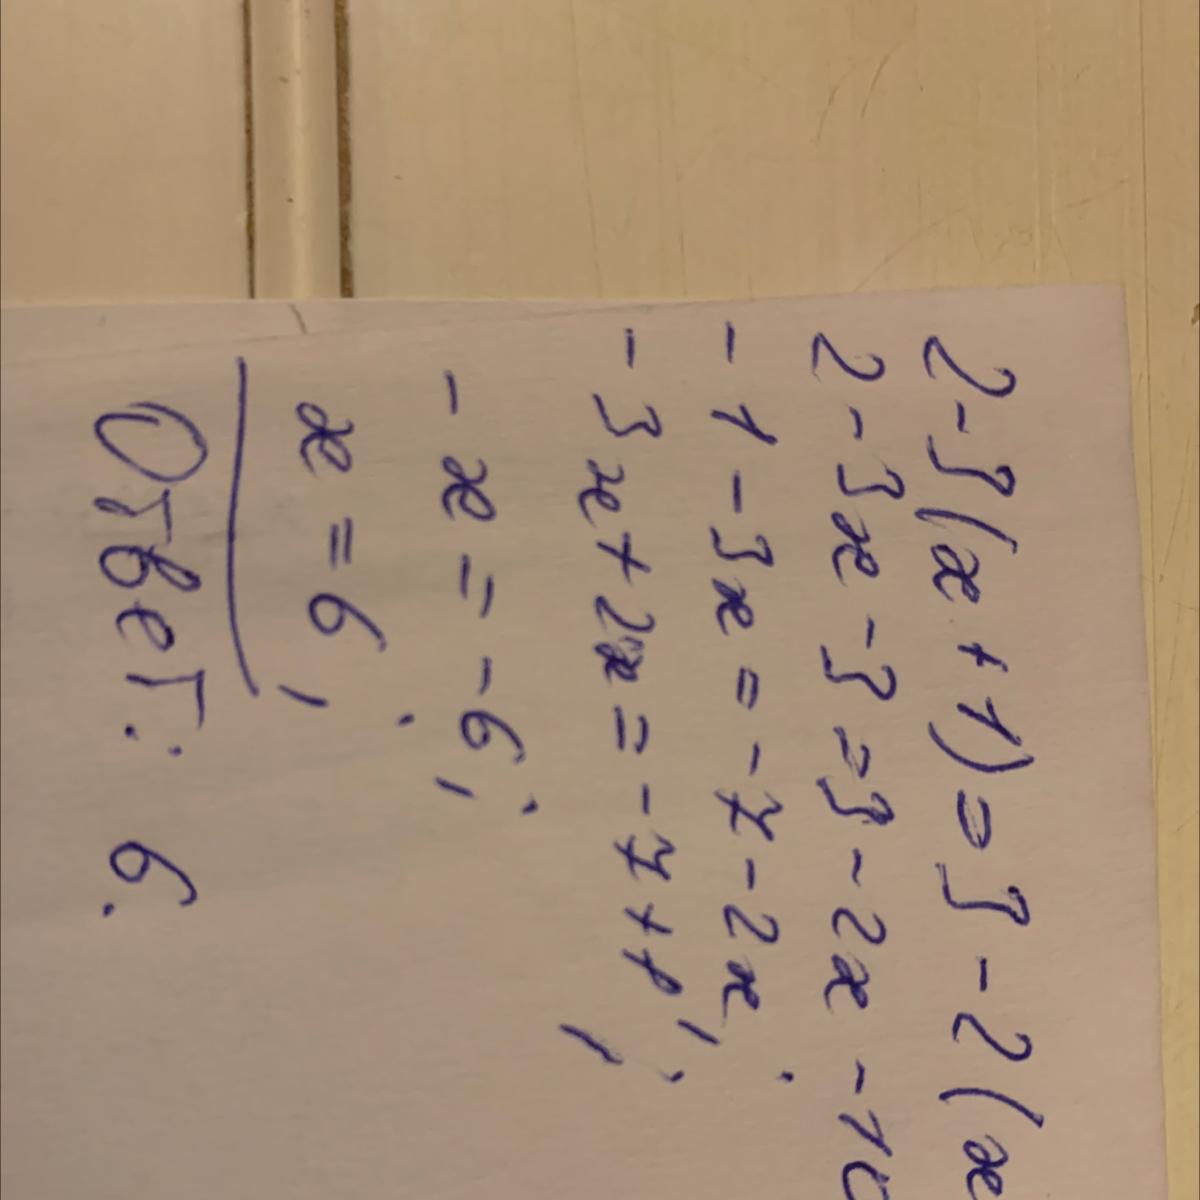 2-3(x+1)=3-2(x
2-3x-3=3-2x-10
-1-3x=-7-2x;
-3x+2x=-7+1;
-x=-6;
x=6;
Ответ: 6.